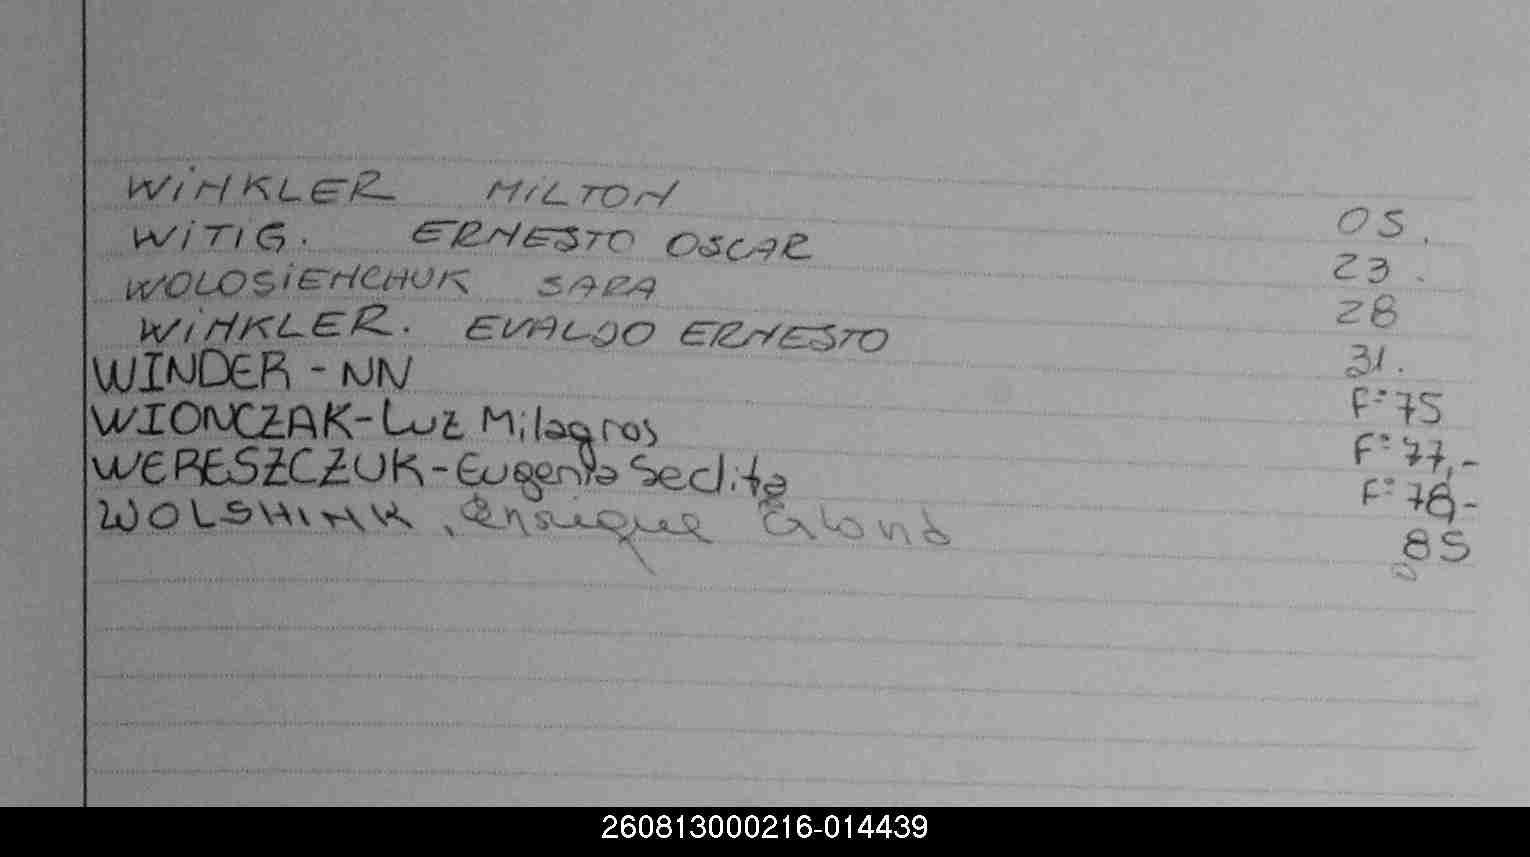 WINKLER MILTON 05.
WITIG. ERNESTO OSCAR 23.
WOLOSIENCHUK SARA 28
WINKLER. EVALDO ERNESTO 31.
WINDER - NN F° 75
WIONCZAK - Luz Milagros F° 77,-
WERESZCZUK - Eugenia Seclita F° 78,-
WOLSHINK, Enrique 85
260813000216-014439